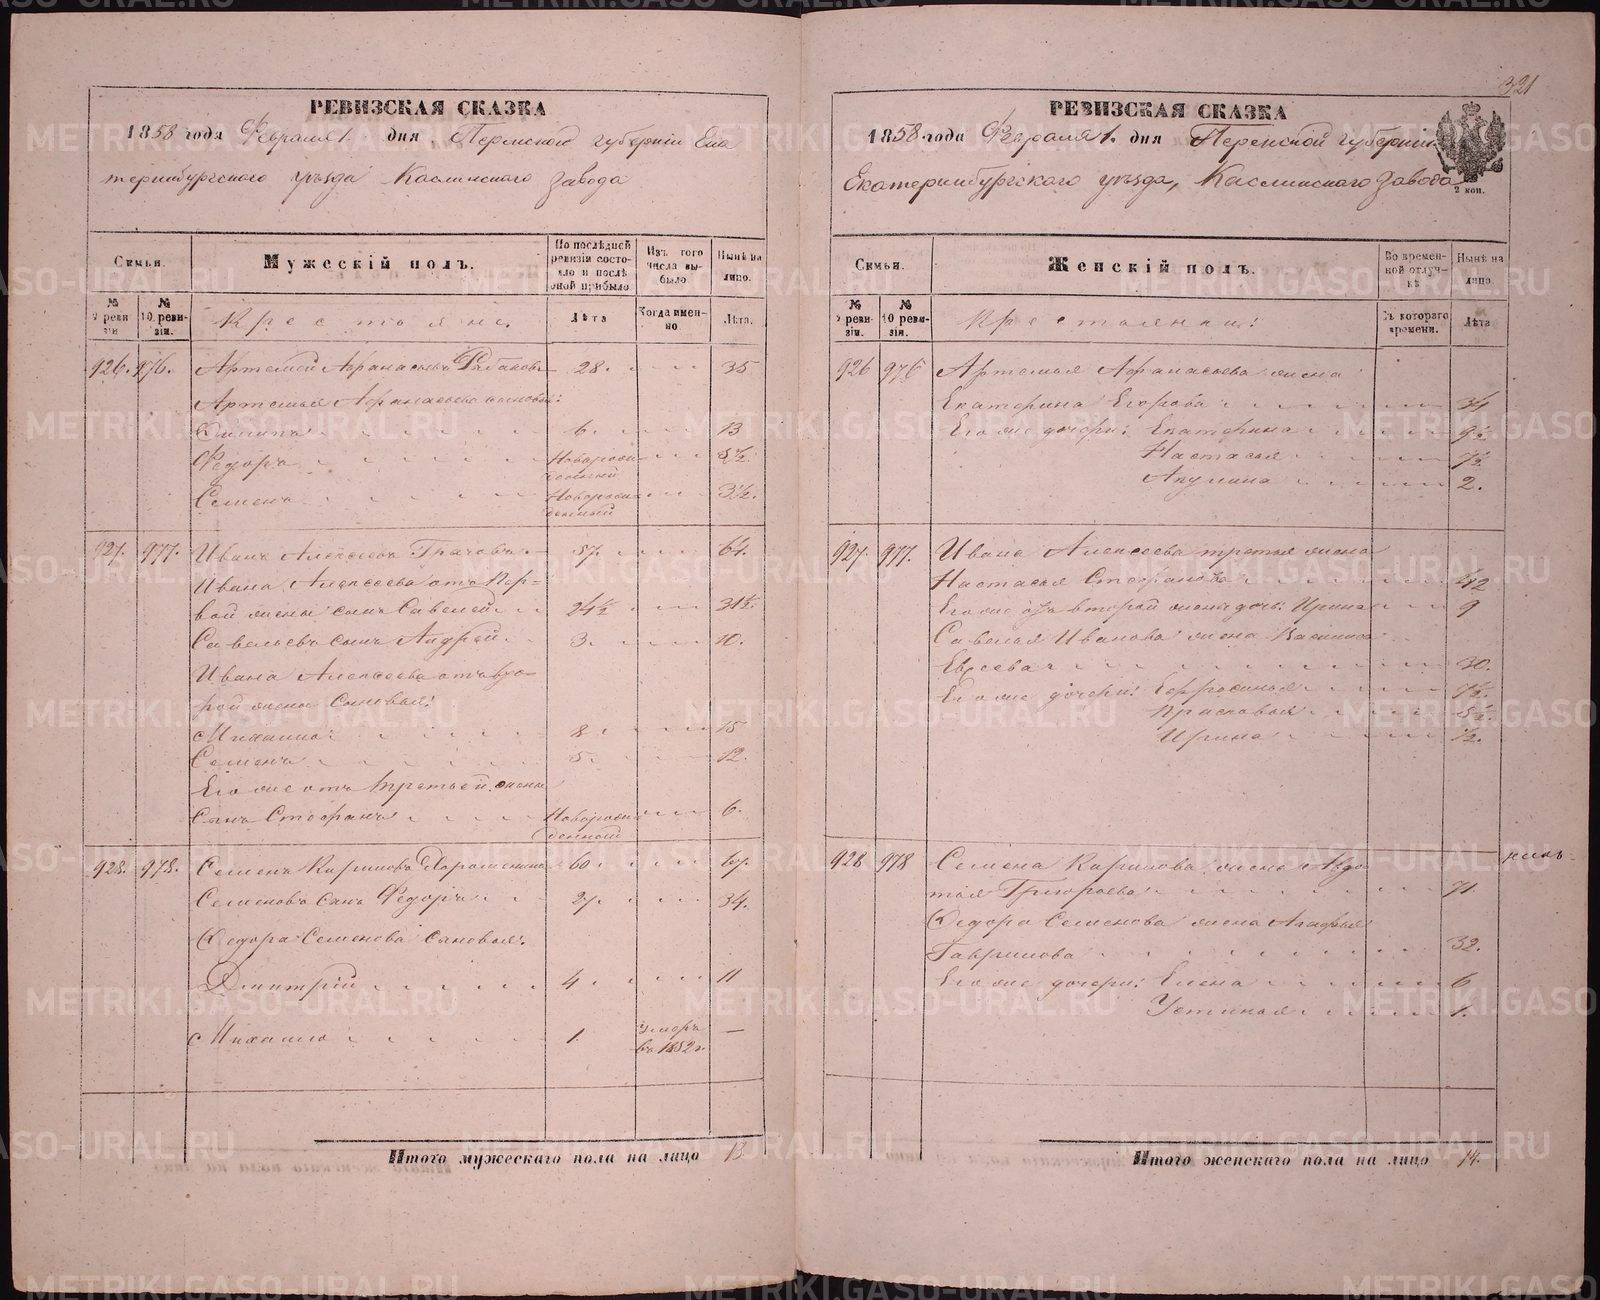 321
РЕВИЗСКАЯ СКАЗКА
1858 года Февраля 1. дня Пермской губерніи Ека
теринбургского уѣзда Каслинского завода
Семьи.
Мужескій полъ.
По послѣдней ревизіи состояло и послѣ оной прибыло
Изъ того числа выбыло
Нынѣ на лицо.
№ 9 ревизіи
№ 10 ревизіи.
Крестьяне.
Лѣта
Когда именно
Лѣта.
926. 976. Артемій Афанасьевъ 28. 35
Артемья Афанасьева сыновья:
Филипъ 6. 13
Федоръ Новорожденный
Семенъ Новорожденный 3½.
927. 977. Иванъ Алексеевъ Грачовъ 57. 64.
Ивана Алексеева отъ пер-
вой жены сынъ Савелей 24½ 31½.
Савельевъ сынъ Андрей 3. 10.
Ивана Алексеева отъ вто-
рой жены сыновья:
Михаило 8. 15
Семенъ 5. 12.
Его же отъ третьей жены
сынъ Стефанъ Новорожденной 6.
928. 978. Семенъ Кириловъ 60 67.
Семеновъ сынъ Федоръ 27. 34.
Федора Семенова сыновья:
Дмитрій 4. 11
Михаило 1. умеръ въ 1852 г. —
Итого мужескаго пола на лицо 13.
РЕВИЗСКАЯ СКАЗКА
1858 года Февраля 1. дня Пермской губерніи
Екатеринбургского уѣзда, Каслинского завода
2 коп.
Семьи.
Женскій полъ.
Во временной отлучкѣ
Нынѣ на лицо.
№ 9 ревизіи.
№ 10 ревизіи.
Крестьянки:
Съ котораго времени.
Лѣта
926 976 Артемья Афанасьева жена
Екатерина Егорова 34
Его же дочери: Екатерина 9½
Настасья 7½
Акулина 2.
927. 977. Ивана Алексеева третья жена
Настасья Стефанова 42
Его же отъ второй жены дочь: Ирина 9
Савелья Иванова жена Василиса
Евсеева 30.
Его же дочери: Ефросинья 7½.
Прасковья 5½.
Ирина ½.
928 978 Семена Кирилова жена Авдо
тья Григорьева 71.
Федора Семенова жена Агафья
Гаврилова 32.
Его же дочери: Елена 6
Устинья 1.
Итого женскаго пола на лицо 14.
METRIKI.GASO-URAL.RU